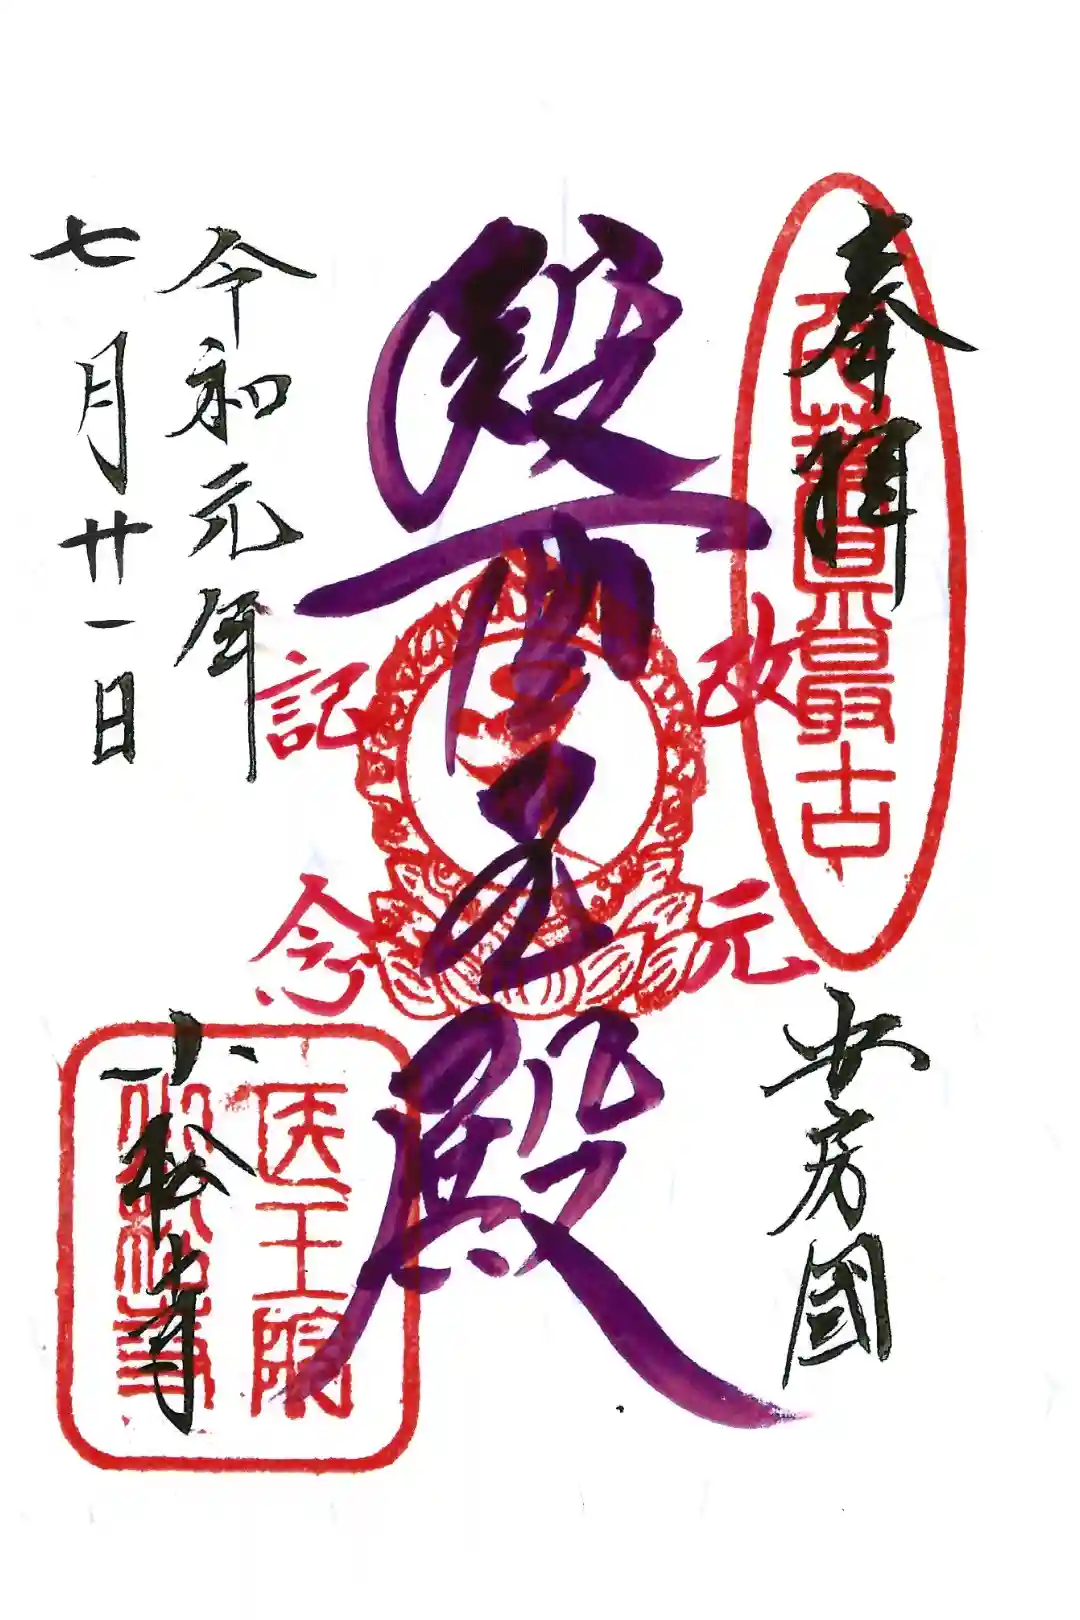 奉拝
千葉県最古
安房國
改元
醫王殿
記念
令和元年
七月廿一日
小松寺
医王院
小松寺